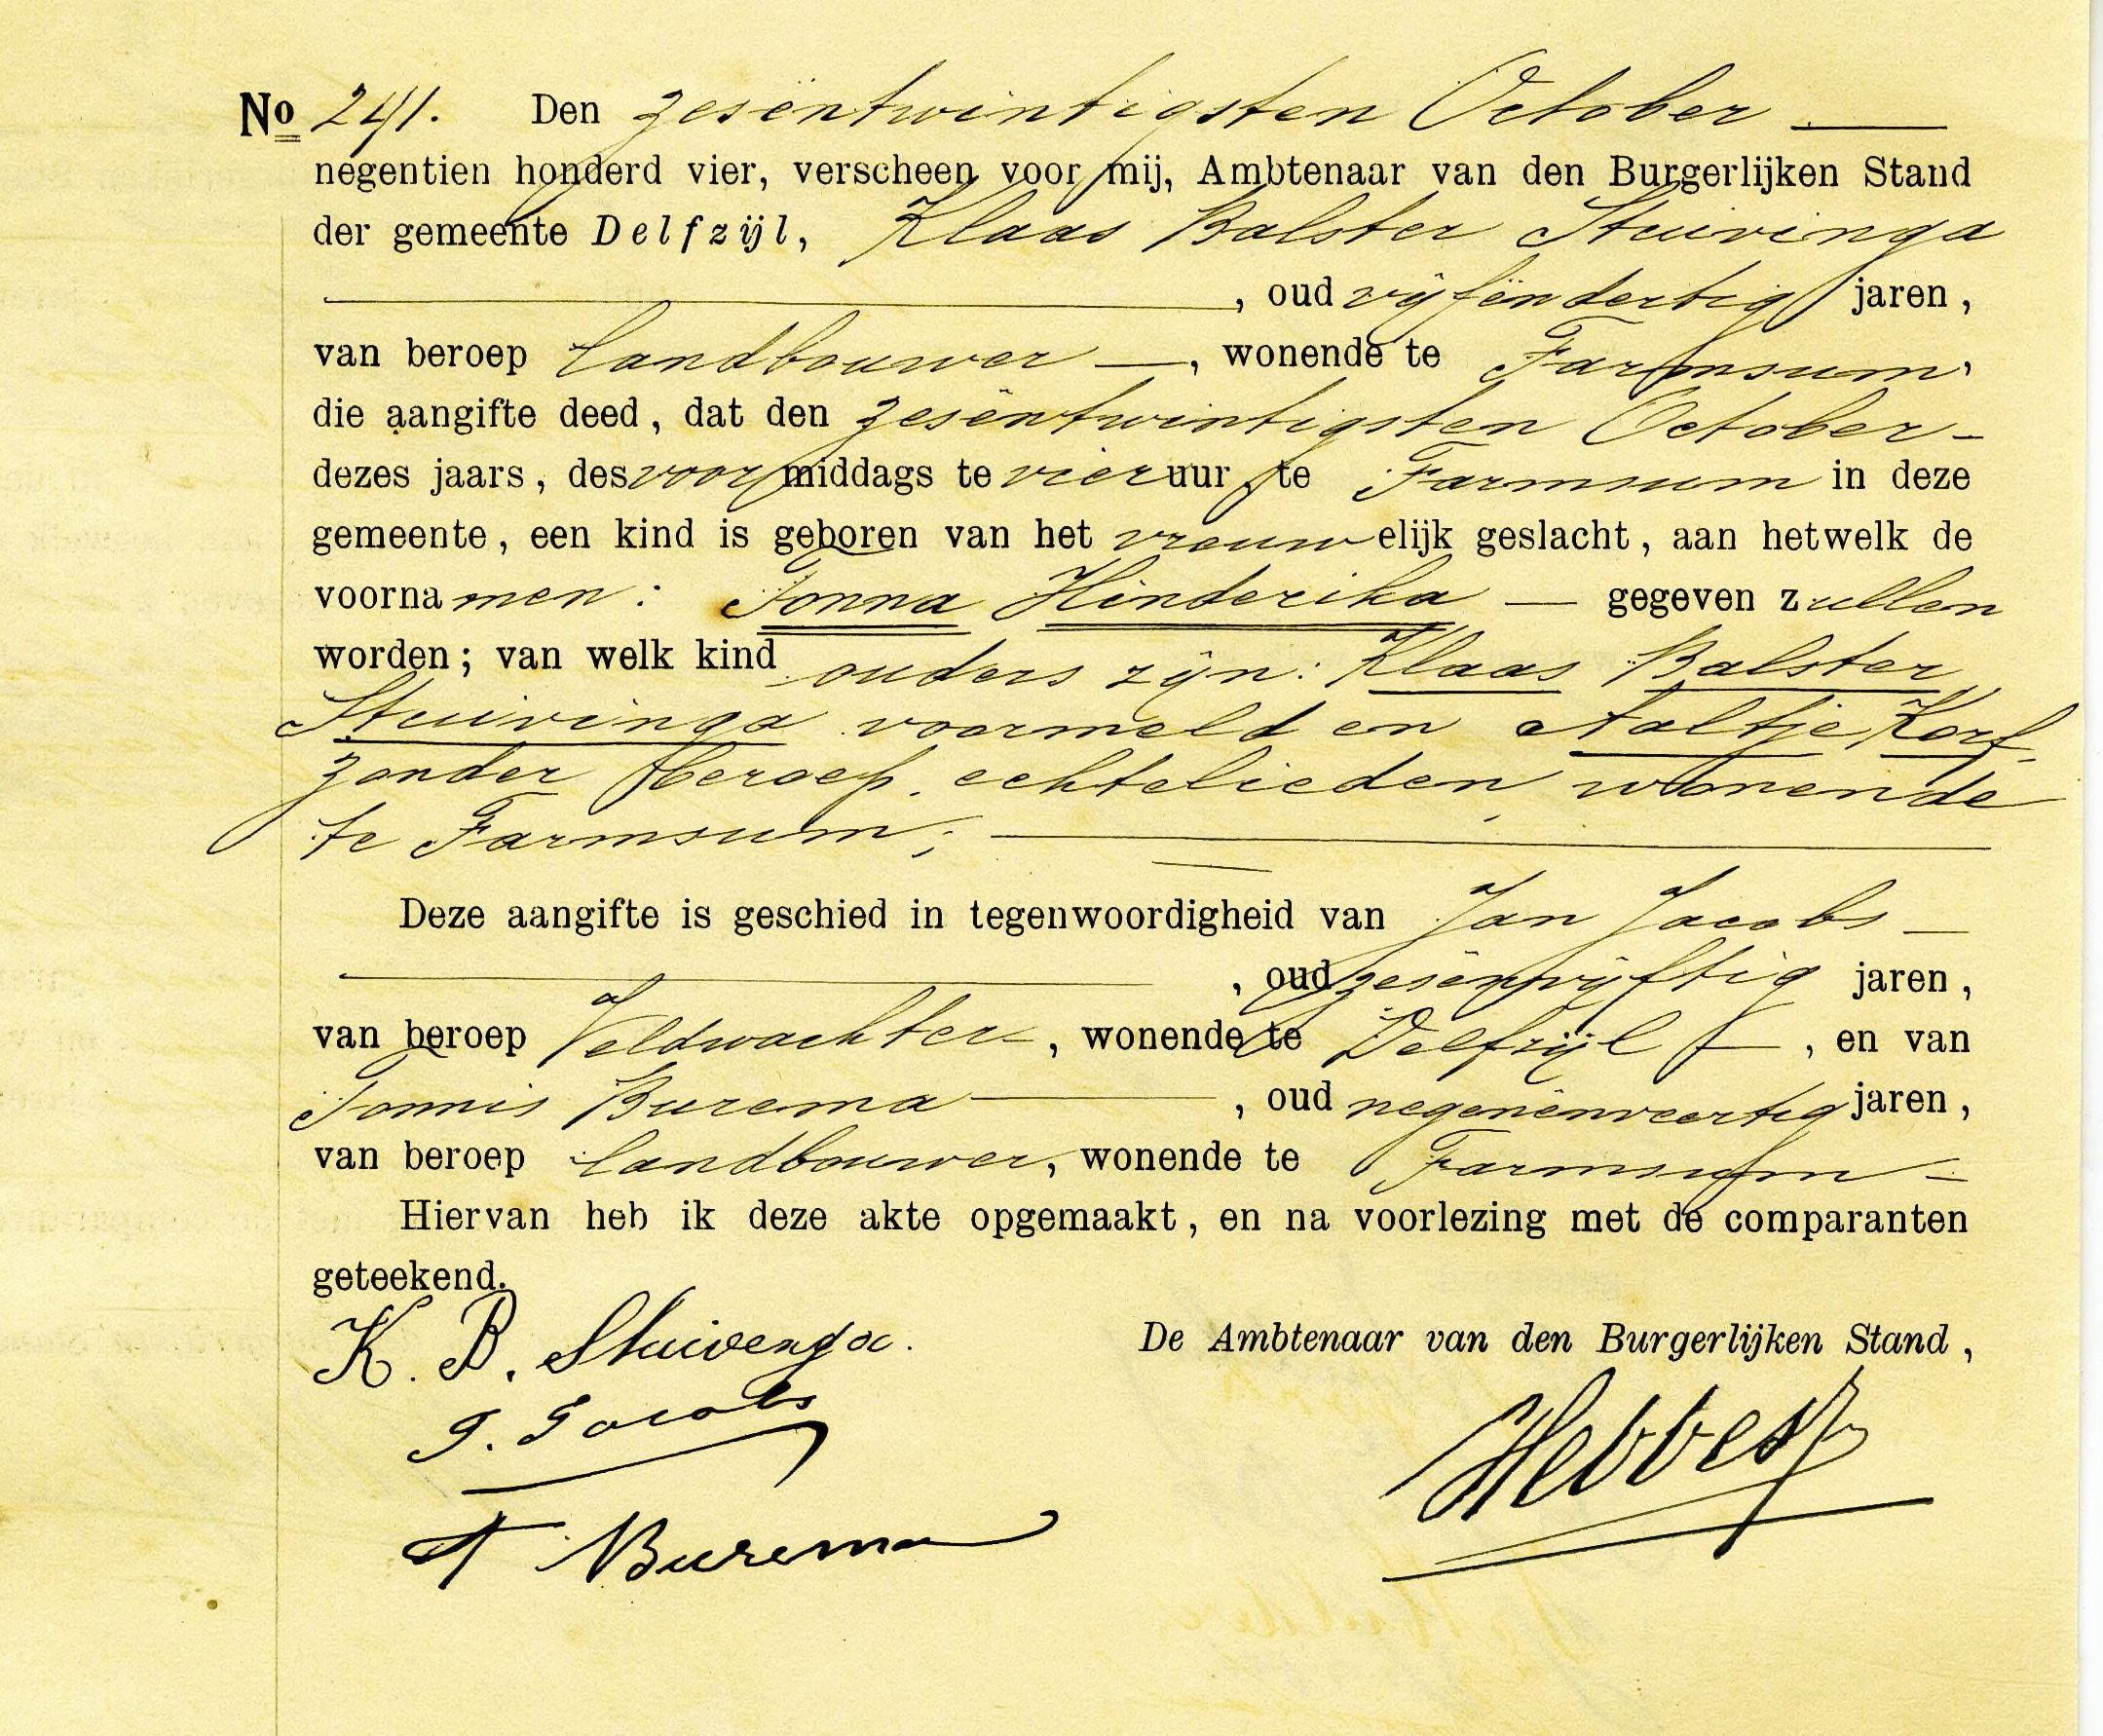 No 241. Den zesëntwintigsten October
negentien honderd vier, verscheen voor mij, Ambtenaar van den Burgerlijken Stand
der gemeente Delfzijl, Klaas Balster Stuivinga
, oud vijfëndertig jaren,
van beroep landbouwer —, wonende te Farmsum,
die aangifte deed, dat den zesëntwintigsten October -
dezes jaars, des voormiddags te vier uur, te Farmsum in deze
gemeente, een kind is geboren van het vrouwelijk geslacht, aan hetwelk de
voornamen: Tonna Hinderika — gegeven zullen
worden; van welk kind ouders zijn: Klaas Balster
Stuivinga voormeld en Aaltje Korf,
zonder beroep, echtelieden, wonende
te Farmsum;
Deze aangifte is geschied in tegenwoordigheid van Jan Jacobs —
, oud zesënvijftig jaren,
van beroep Veldwachter —, wonende te Delfzijl —, en van
Tonnis Burema —, oud negenënveertig jaren,
van beroep landbouwer, wonende te Farmsum —
Hiervan heb ik deze akte opgemaakt, en na voorlezing met de comparanten
geteekend.
K. B. Stuivenga.
De Ambtenaar van den Burgerlijken Stand,
J. Jacobs
T Burema